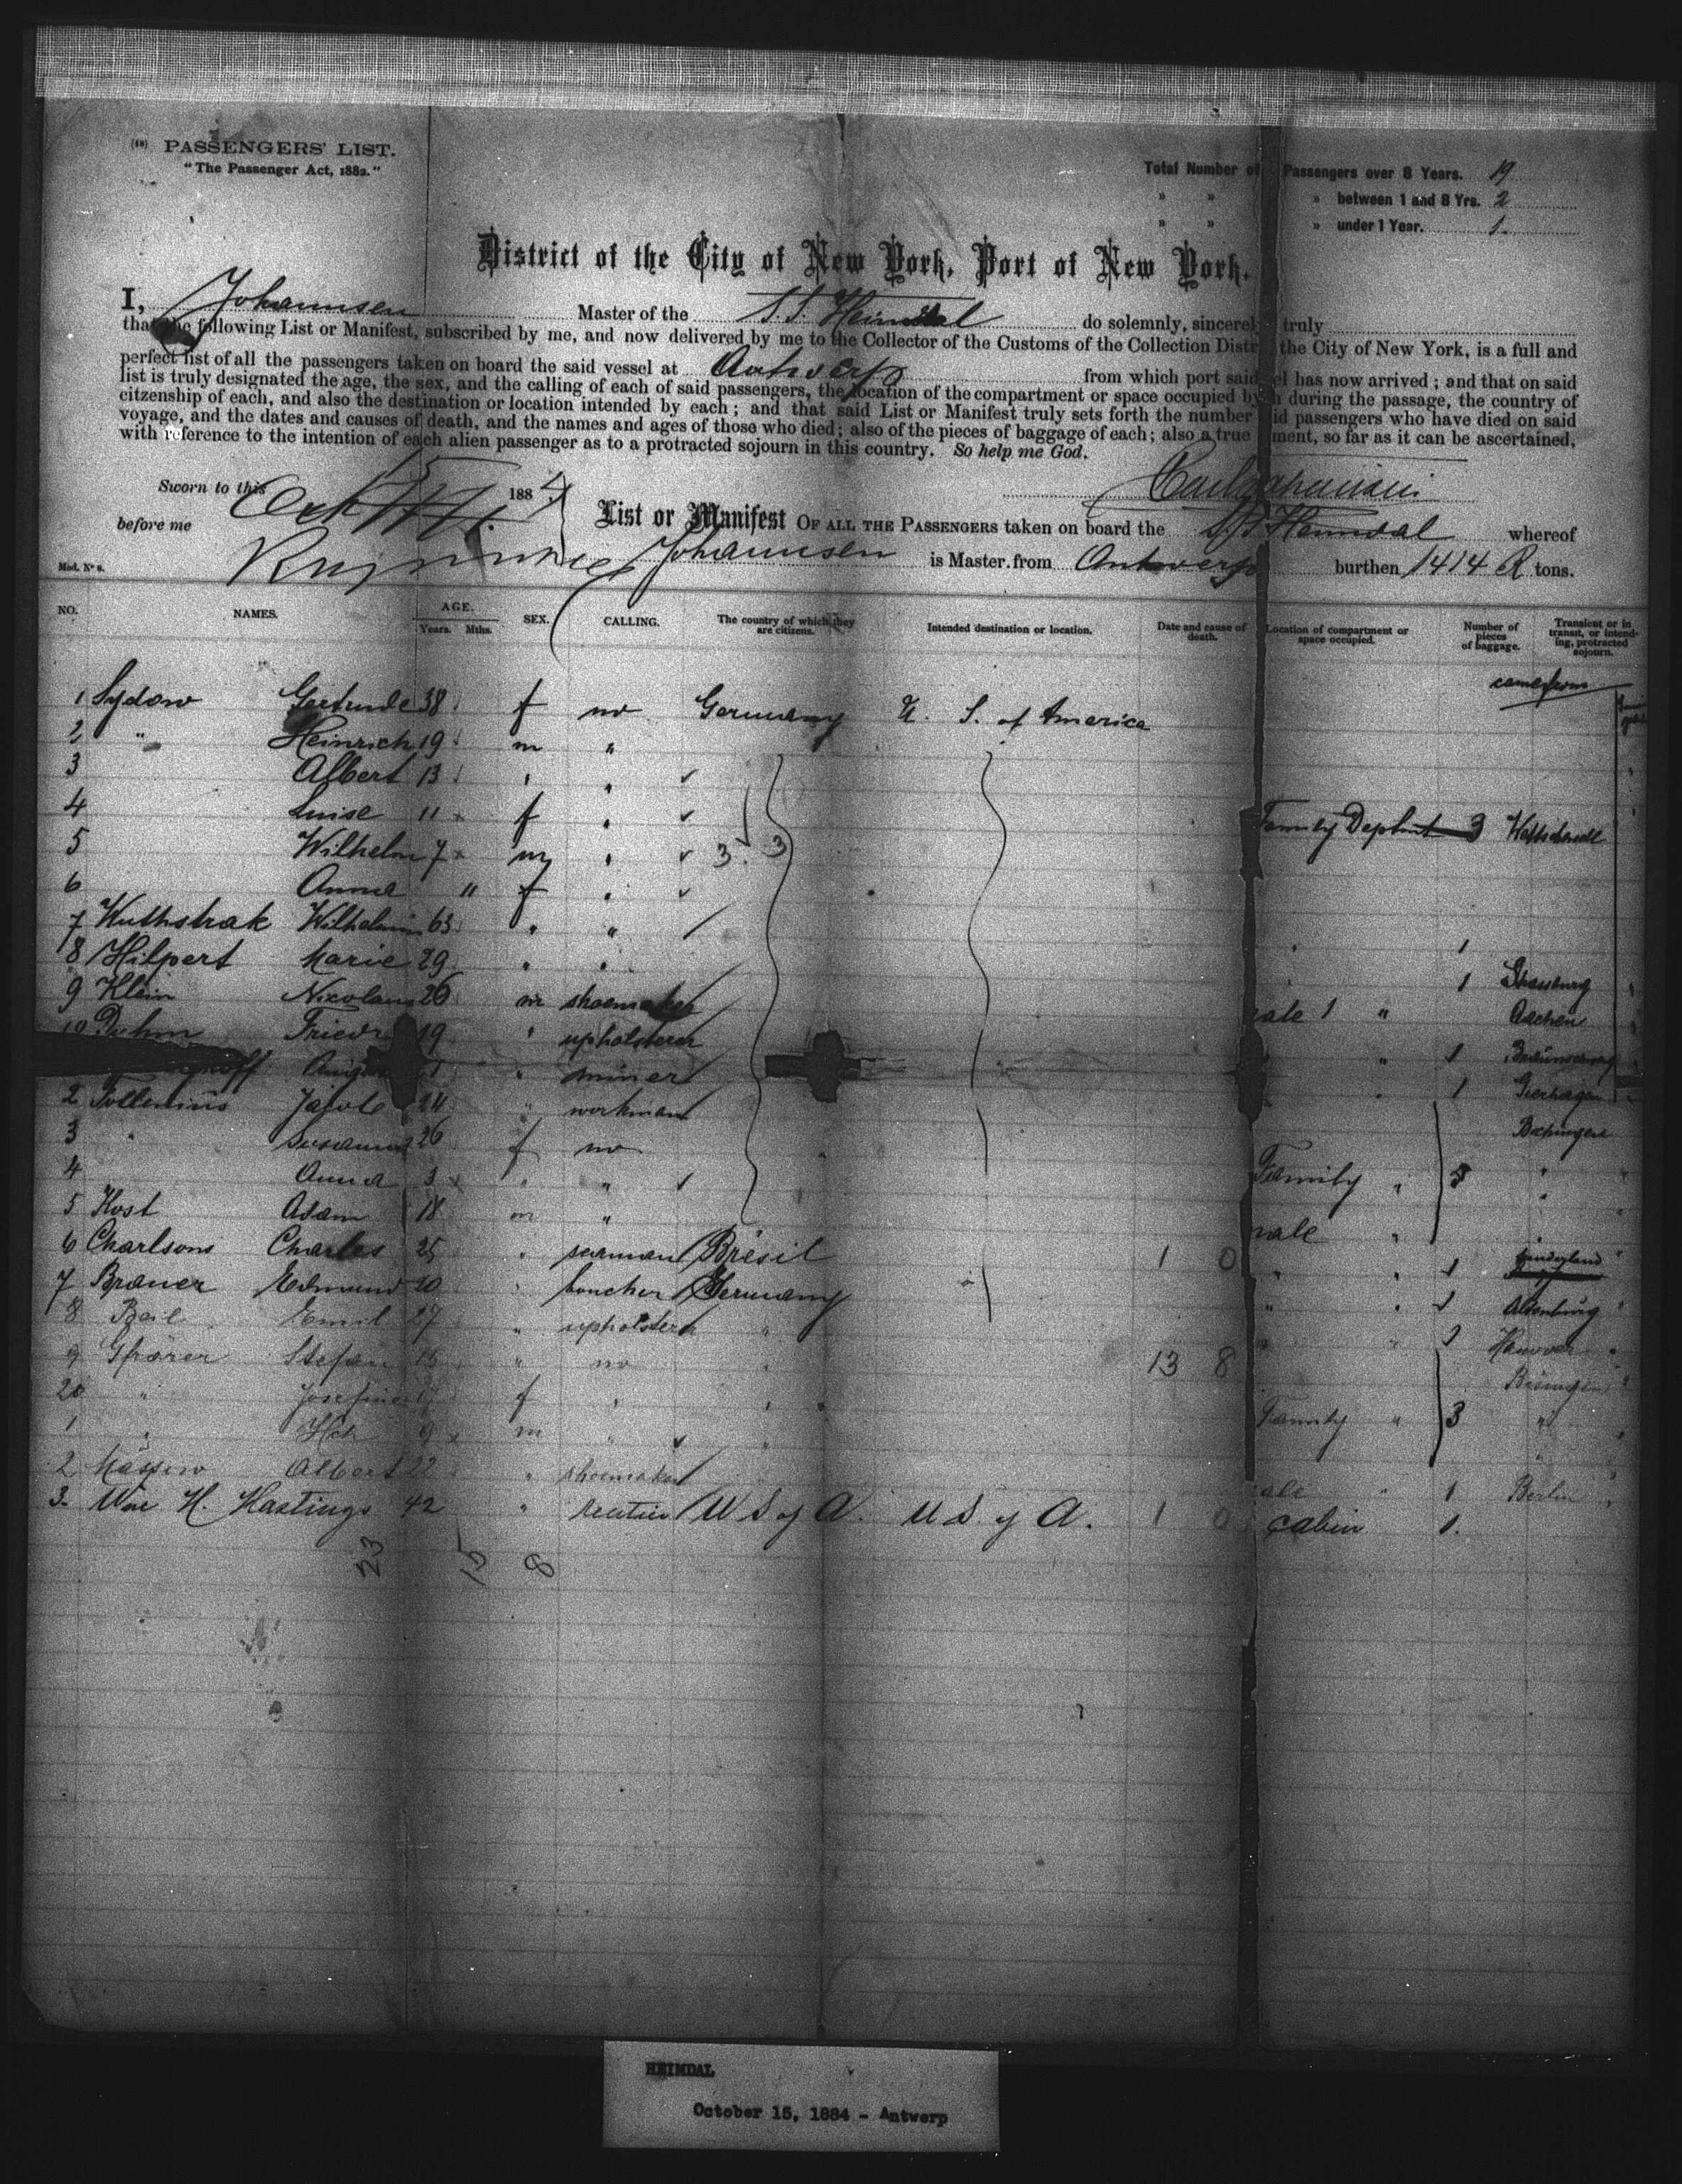 (18) PASSENGERS' LIST.
"The Passenger Act, 1882."
Total Number of Passengers over 8 Years. 19
" " " between 1 and 8 Yrs. 2
" " " under 1 Year. 1.
District of the City of New York, Port of New York.
I, Johannsen Master of the S.S. Heimdal do solemnly, sincerel truly
that the following List or Manifest, subscribed by me, and now delivered by me to the Collector of the Customs of the Collection Distr the City of New York, is a full and
perfect list of all the passengers taken on board the said vessel at Antwerp from which port said el has now arrived; and that on said
list is truly designated the age, the sex, and the calling of each of said passengers, the location of the compartment or space occupied by h during the passage, the country of
citzenship of each, and also the destination or location intended by each; and that said List or Manifest truly sets forth the number id passengers who have died on said
voyage, and the dates and causes of death, and the names and ages of those who died; also of the pieces of baggage of each; also a true ment, so far as it can be ascertained,
with reference to the intention of each alien passenger as to a protracted sojourn in this country. So help me God.
Sworn to this Oct 15 1884
before me
List or Manifest OF ALL THE PASSENGERS taken on board the S.S. Heimdal whereof
Johannsen is Master, from Antwerp burthen 1414 R tons.
Mod. Nº 8.
NO. NAMES. AGE. Years. Mths. SEX. CALLING. The country of which they are citizens. Intended destination or location. Date and cause of death. Location of compartment or space occupied. Number of pieces of baggage. Transient or in transit, or intending, protracted sojourn.
came from
1 Sydow Gertrude 38 f no Germany U. S. of America
2 " Heinrich 19 m "
3 Albert 13 " "
4 Luise 11 f " Family Deptmt 3
5 Wilhelm 7 m " 3. 3
6 Anna 11 f "
7 Wuthstrak Wilhelmin 63 " "
8 Hilpert Marie 29 " " 1
9 Klein Nicolaus 26 m shoemaker 1 Strassburg
10 Friedr 19 " upholsterer ale 1 " Aachen
hoff August " miner 1 Braunschweig
2 Jacob 24 " workman 1
3 " Susanna 26 f no
4 Anna 3 " " Family " 3 "
5 Kost Adam 18 m " male "
6 Charlsons Charles 25 " seaman Brésil 1 0 1
7 Brauer Edmund 20 " boucher Germany 1 Altenburg
8 Beil Emil 27 " upholsterer " 1 Hanover
9 Gfrörer Stefan 15 " no " 13 8
20 " Josefine 17 f " " Family " 3 "
1 " Hch 9 m " "
2 Albert 22 " shoemaker ale 1 Berlin
3. Wm H. Hastings 42 " U S of A. U S. of A. 1 0 cabin 1.
23 15 8
HEIMDAL
October 15, 1884 - Antwerp